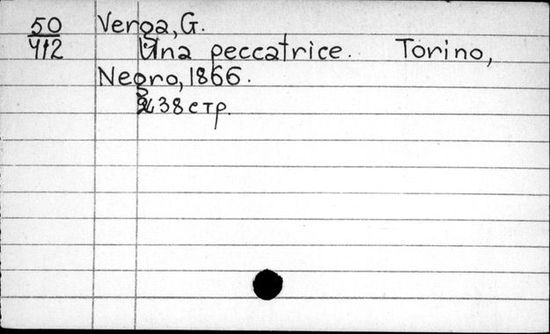 50 Verga, G.
412 Una peccatrice. Torino,
Negro, 1866.
238 стр.